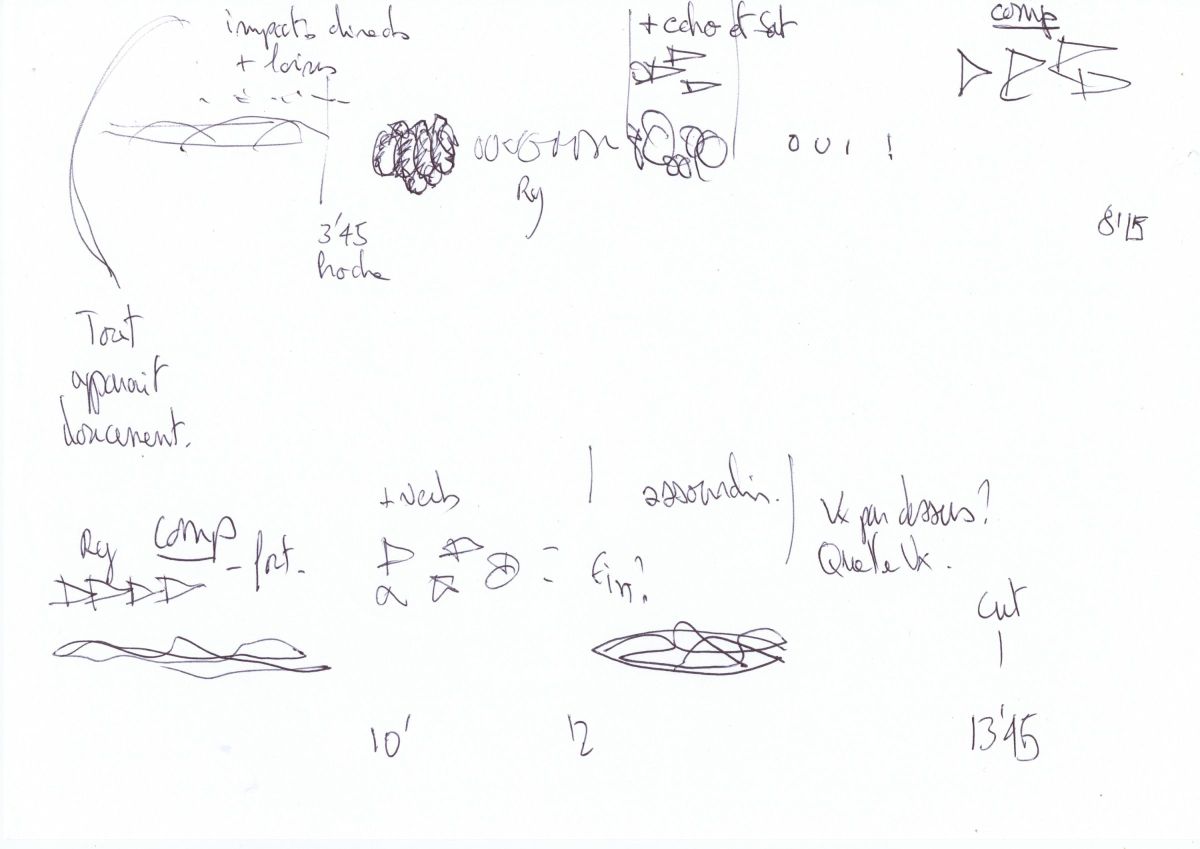 impacts directs
+ loins
+ echo et sat
comp
Ry
OUI !
3'45
8'15
Tout
apparait
doucement.
Ry comp - fort.
+ verb
= Fin?
assourdis.
Vx par dessus?
Quelle Vx.
cut
10'
12
13'45